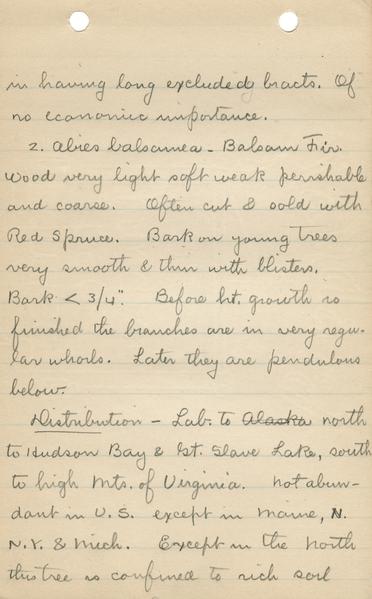 in having long excluded bracts. Of
no economic importance.
2. Abies balsamea - Balsam Fir.
Wood very light soft weak perishable
and coarse. Often cut & sold with
Red Spruce. Bark on young trees
very smooth & thin with blisters.
Bark < 3/4". Before ht. growth is
finished the branches are in very regu-
lar whorls. Later they are pendulous
below.
Distribution - Lab. to Alaska north
to Hudson Bay & Gt. Slave Lake, south
to high Mts. of Virginia. Not abun-
dant in U.S. except in Maine, N.
N.Y. & Mich. Except in the North
this tree is confined to rich soil